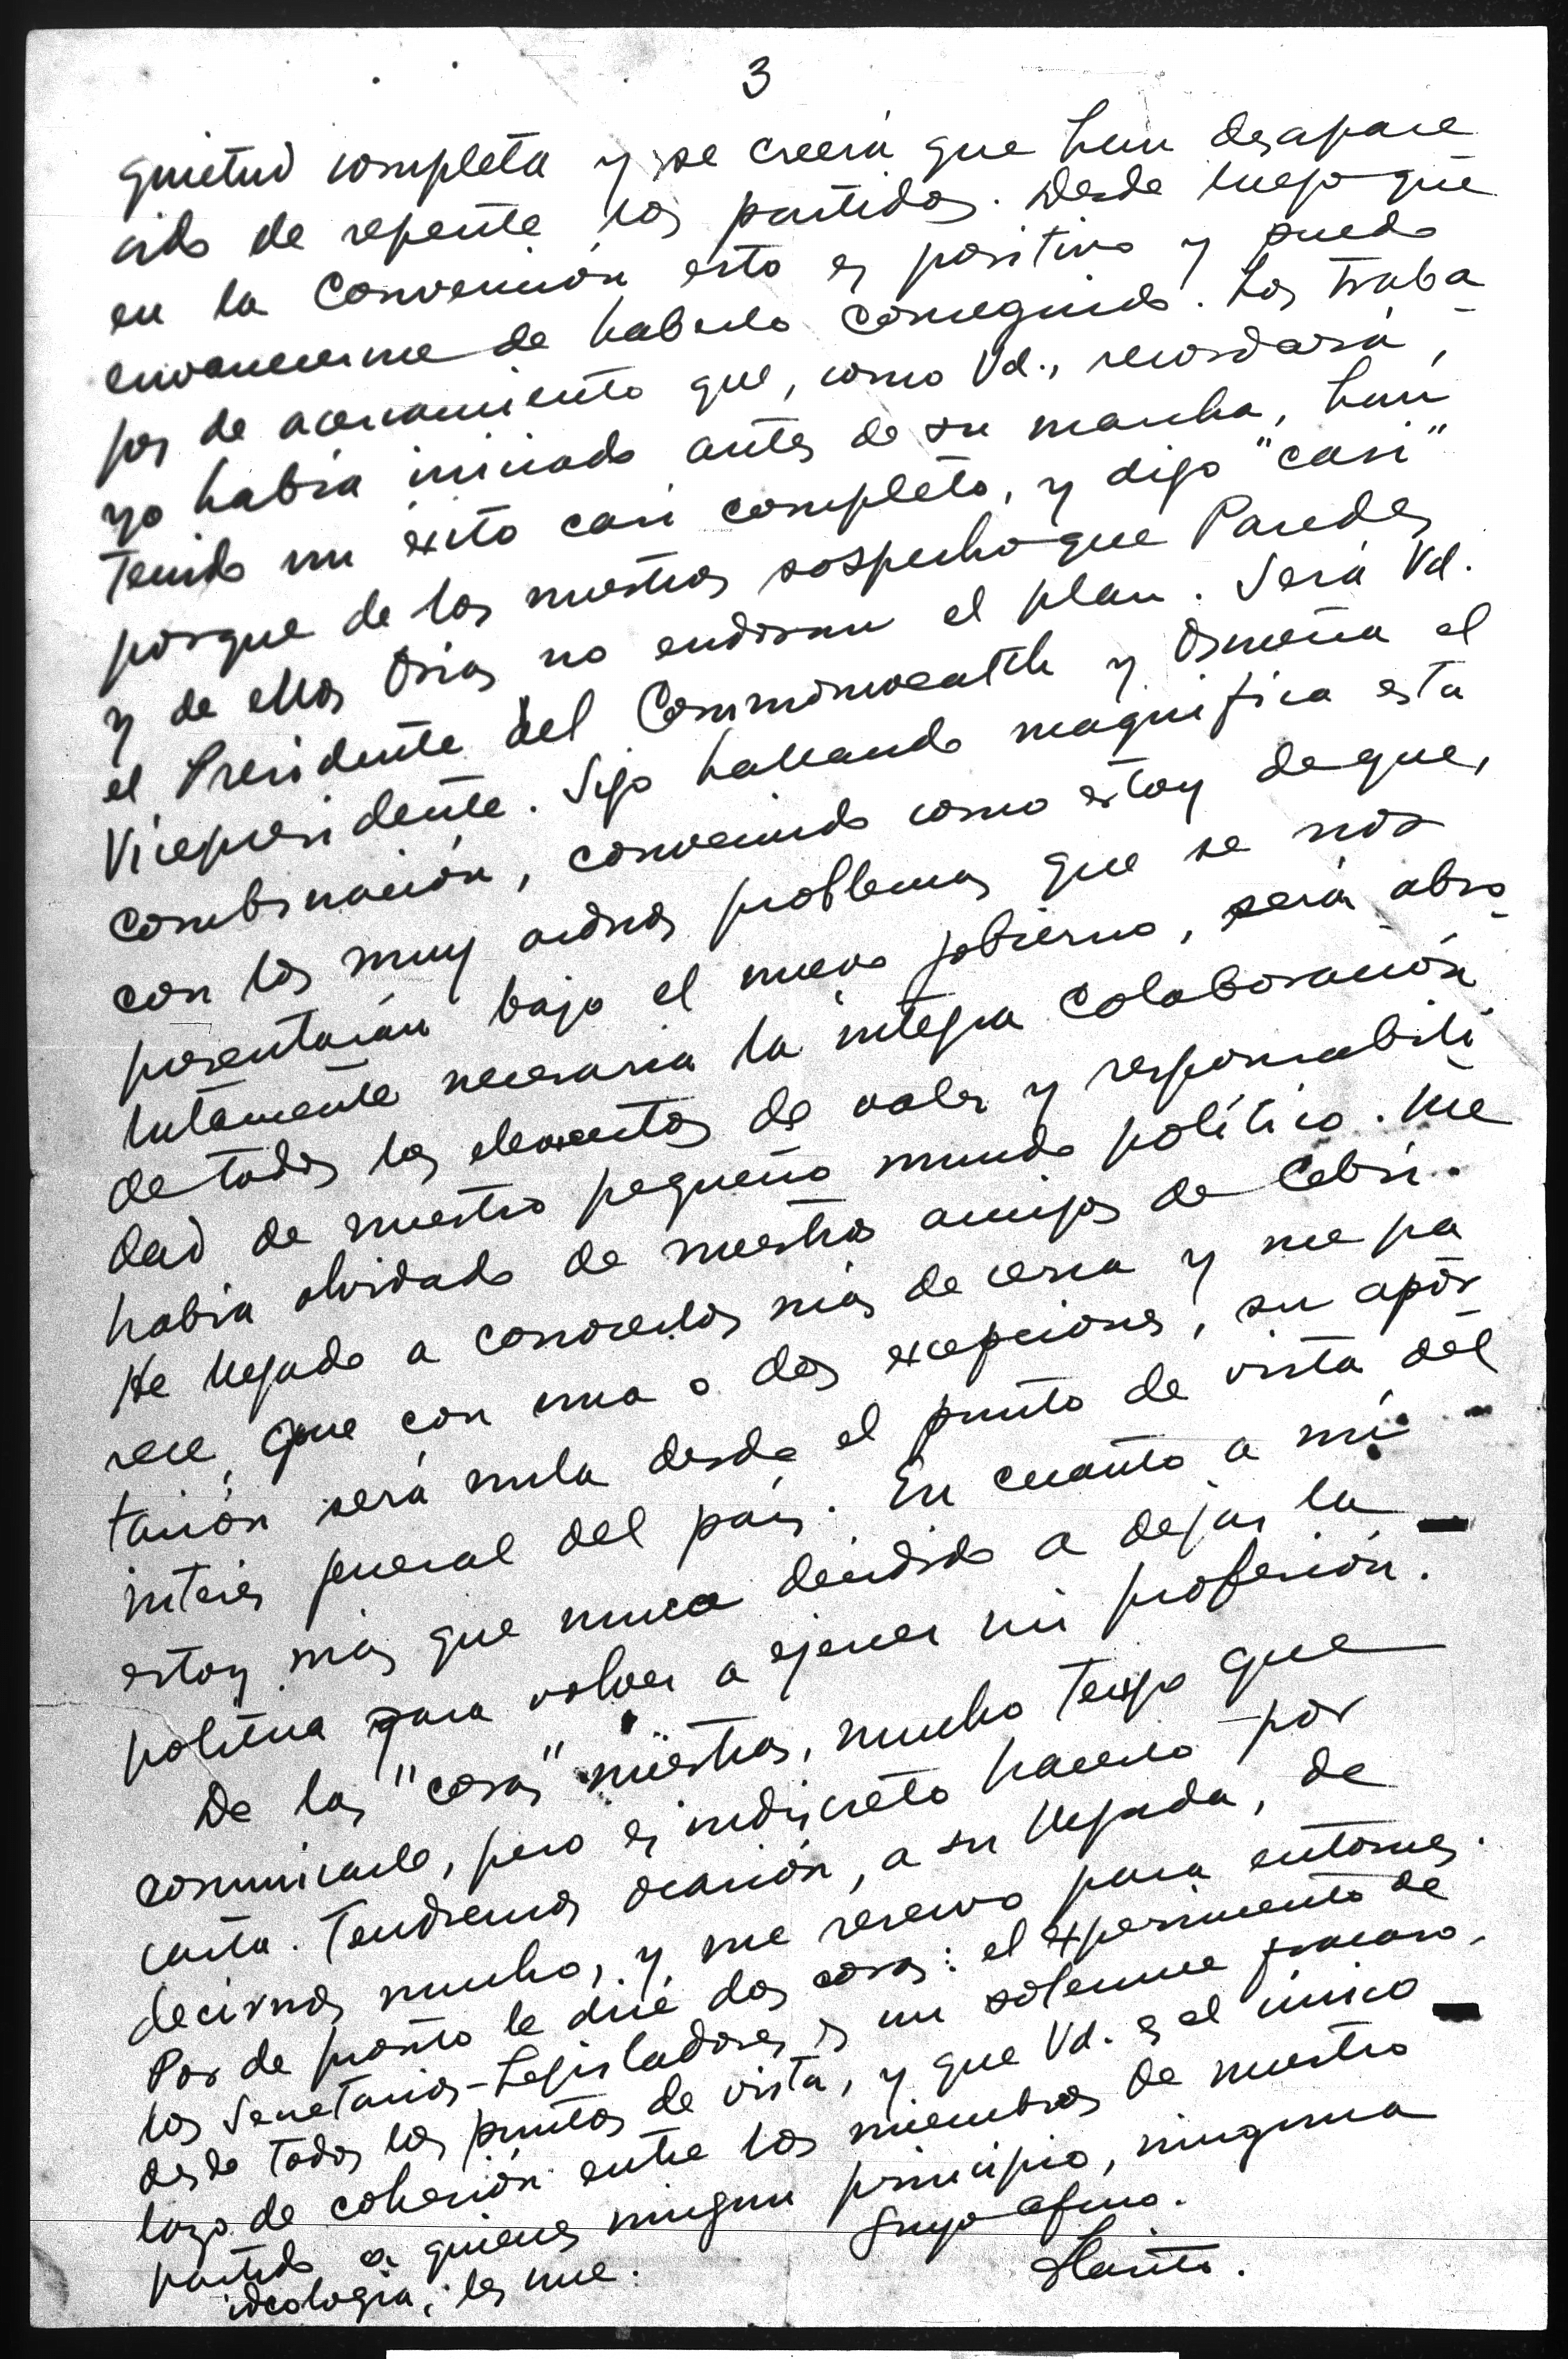 3
quietud completa y se creería que han desapare
cido de repente los partidos. Desde luego que
en la Convención esto es positivo y puedo
envanecerme de haberlo conseguido. Los traba-
jos de acercamiento que, como Vd., recordará,
yo había iniciado antes de su marcha, han
tenido un éxito casi completo, y digo "casi"
porque de los nuestros sospecho que Paredes
y de ellos Osias no endosan el plan. Será Vd.
el Presidente del Commonwealth y Osmeña el
Vicepresidente. Sigo hallando magnífica esta
combinación, convencido como estoy de que,
con los muy arduos problemas que se nos
presentarán bajo el nuevo gobierno, será abso-
lutamente necesaria la íntegra colaboración
de todos los elementos de valer y responsabili-
dad de nuestro pequeño mundo político. Me
había olvidado de nuestros amigos de Cebú.
He llegado a conocerlos más de cerca y me pa
rece que con una o dos excepciones, su apor-
tación será nula desde el punto de vista del
interés general del país. En cuanto a mí
estoy más que nunca decidido a dejar la
política para volver a ejercer mi profesión.
De las "cosas" nuestras, mucho tengo que
comunicarle, pero es indiscreto hacerlo por
carta. Tendremos ocasión, a su llegada, de
decirnos mucho, y me reservo para entonces.
Por de pronto le diré dos cosas: el experimento de
los Secretarios-Legisladores es un solemne fracaso,
desde todos los puntos de vista, y que Vd. es el único
lazo de cohesión entre los miembros de nuestro
partido a quienes ningun principio, ninguna
ideología, les une.
Suyo afmo.